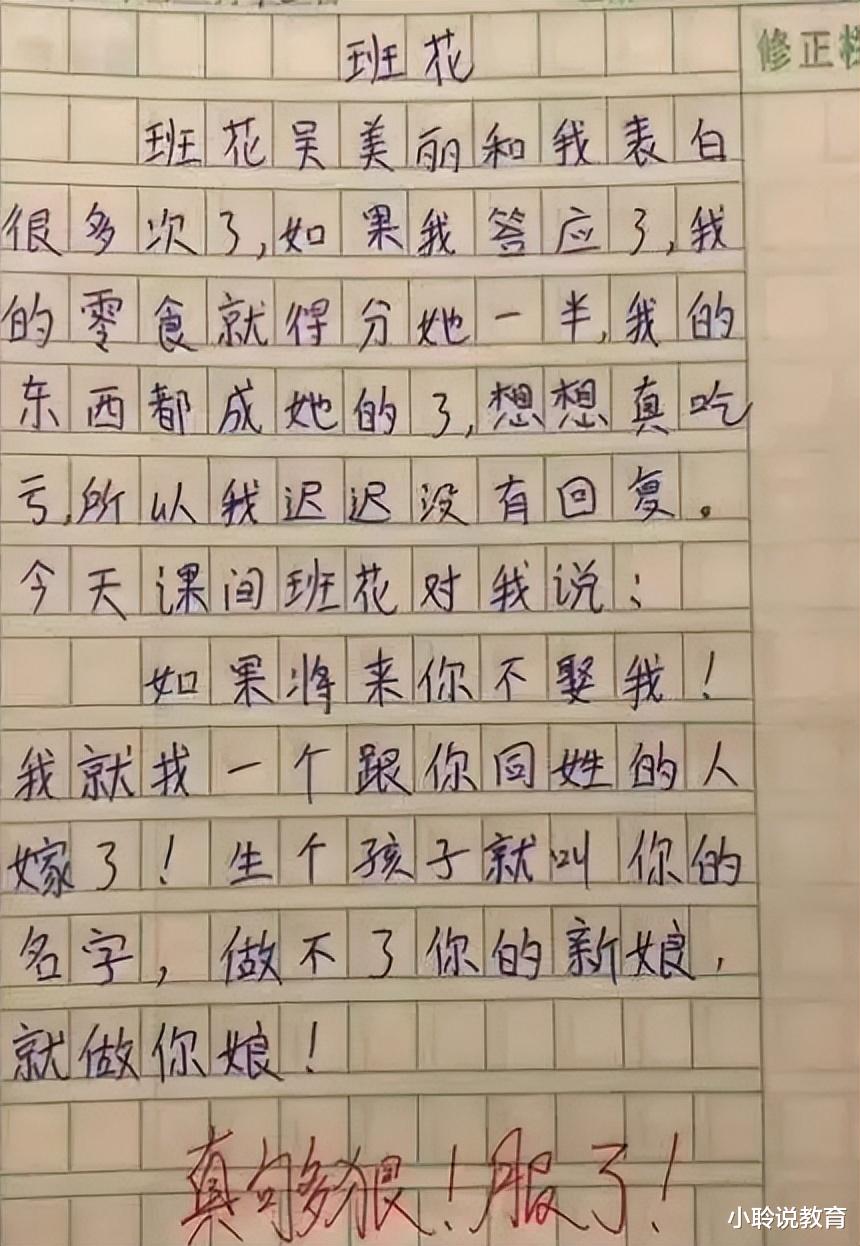 班花
修正栏
班花吴美丽和我表白
很多次了,如果我答应了,我
的零食就得分她一半,我的
东西都成她的了,想想真吃
亏,所以我迟迟没有回复。
今天课间班花对我说:
如果将来你不娶我!
我就找一个跟你同姓的人
嫁了!生个孩子就叫你的
名字,做不了你的新娘,
就做你娘!
真够狠!服了!
小聆说教育